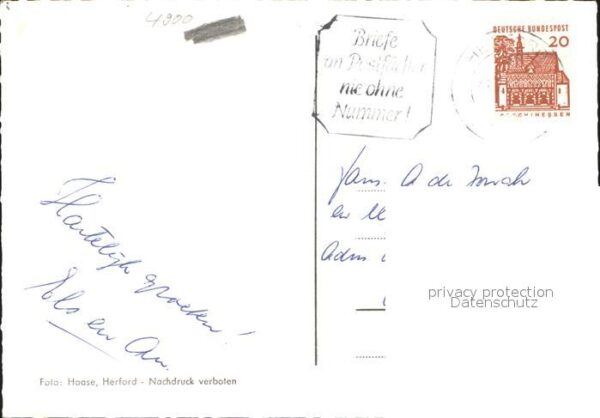 4900
Briefe
an Postfächer
nie ohne
Nummer!
DEUTSCHE BUNDESPOST
20
LORSCH/HESSEN
Hartelijk groeten!
Els en An.
Fam. A de
en
Adm
privacy protection
Datenschutz
Foto: Haase, Herford - Nachdruck verboten